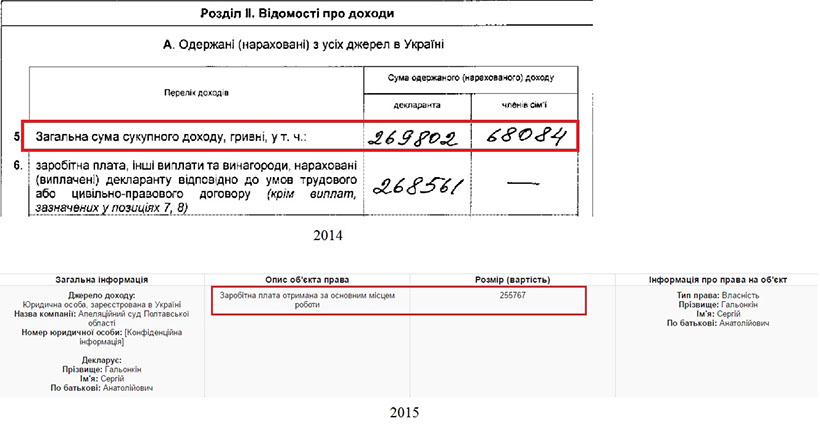 Розділ II. Відомості про доходи
А. Одержані (нараховані) з усіх джерел в Україні
Перелік доходів
Сума одержаного (нарахованого) доходу
декларанта
членів сім'ї
5 Загальна сума сукупного доходу, гривні, у т. ч.: 269802 68084
6. заробітна плата, інші виплати та винагороди, нараховані
(виплачені) декларанту відповідно до умов трудового
або цивільно-правового договору (крім виплат,
зазначених у позиціях 7, 8)
268561 —
2014
Загальна інформація Опис об'єкта права Розмір (вартість) Інформація про права на об'єкт
Джерело доходу:
Юридична особа, зареєстрована в Україні
Назва компанії: Апеляційний суд Полтавської
області
Номер юридичної особи: [Конфіденційна
інформація]
Декларує:
Прізвище: Гальонкін
Ім'я: Сергій
По батькові: Анатолійович
Заробітна плата отримана за основним місцем
роботи
255767
Тип права: Власність
Прізвище: Гальонкін
Ім'я: Сергій
По батькові: Анатолійович
2015